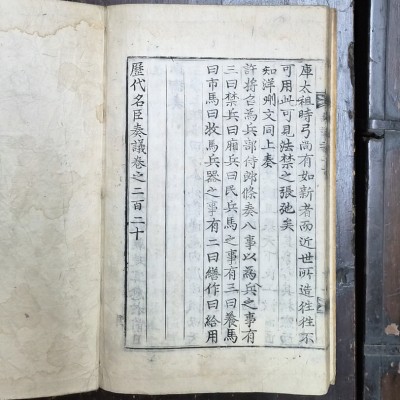 庫太祖時弓尚有如新者而近世所造往往不
可用此可見法禁之張弛矣
知洋州文同上奏
許將爲兵部侍郎條奏八事以爲兵之事有
三曰禁兵曰廂兵曰民兵馬之事有三曰養馬
曰市馬曰牧馬兵器之事有二曰繕作曰給用
歷代名臣奏議卷之二百二十